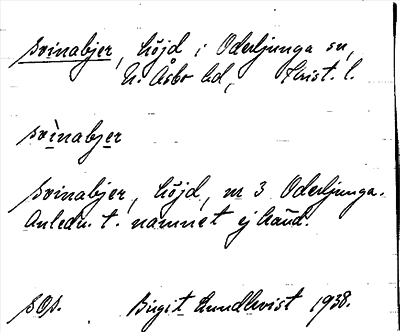 svinabjer, höjd i Oderljunga sn,
N. Åsbo hd, Krist. l.
svìnabjer
svinabjer, höjd, m 3 Oderljunga.
Anledn. t. namnet ej känd.
sOp. Birgit Lundkvist 1938.